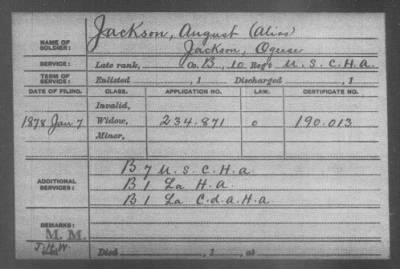 NAME OF SOLDIER: Jackson, August (Alias)
Jackson, Oguese
SERVICE: Late rank, Co. B, 10 Reg't U. S. C. H. A.
TERM OF SERVICE: Enlisted , 1 Discharged , 1
DATE OF FILING. CLASS. APPLICATION NO. LAW. CERTIFICATE NO.
Invalid,
1878 Jan 7 Widow, 234.871 o 190.013
Minor,
ADDITIONAL SERVICES: B 7 U. S. C. H. A.
B 1 La H. A.
B 1 La C. d. A. H. a
REMARKS:
M. M.
Died , 1 , at